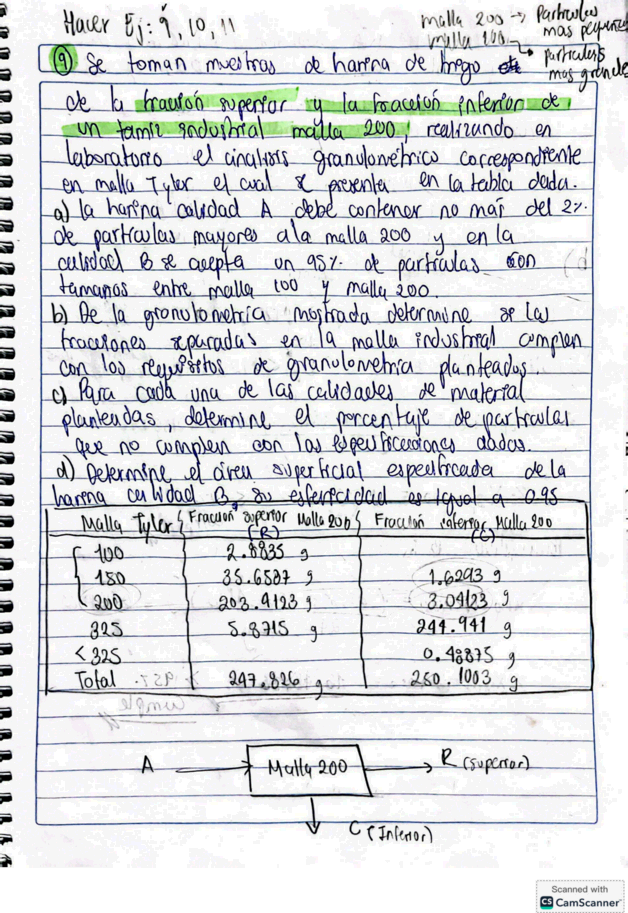 Hacer Ej: 9, 10, 11
malla 200 → Particulas mas pequeñas
malla 100 → particulas mas grandes
9) Se toman muestras de harina de trigo
de la fracción superior y la fracción inferior de
un tamiz industrial malla 200, realizando en
laboratorio el analisis granulométrico correspondiente
en malla Tyler el cual se presenta en la tabla dada.
a) la harina calidad A debe contener no mas del 2%
de particulas mayores a la malla 200 y en la
calidad B se acepta un 95% de particulas con
tamanos entre malla 100 y malla 200.
b) De la granulometria mostrada determine si las
fracciones separadas en la malla industrial cumplen
con los requisitos de granulometria planteados.
c) Para cada una de las calidades de material
planteadas, determine el porcentaje de particulas
que no cumplen con las especificaciones dadas.
d) Determine el area superficial especificada de la
harina calidad B, su esfericidad es igual a 0.95
Malla Tyler Fraccion superior Malla 200 (R) Fraccion inferior Malla 200 (C)
100 2.8835 g
150 35.6587 g 1.6293 g
200 203.4123 g 3.0423 g
325 5.8715 g 244.941 g
<325 0.48875 g
Total 247.826 g 250.1003 g
A Malla 200 R (superior)
C (Inferior)
Scanned with
CS CamScanner